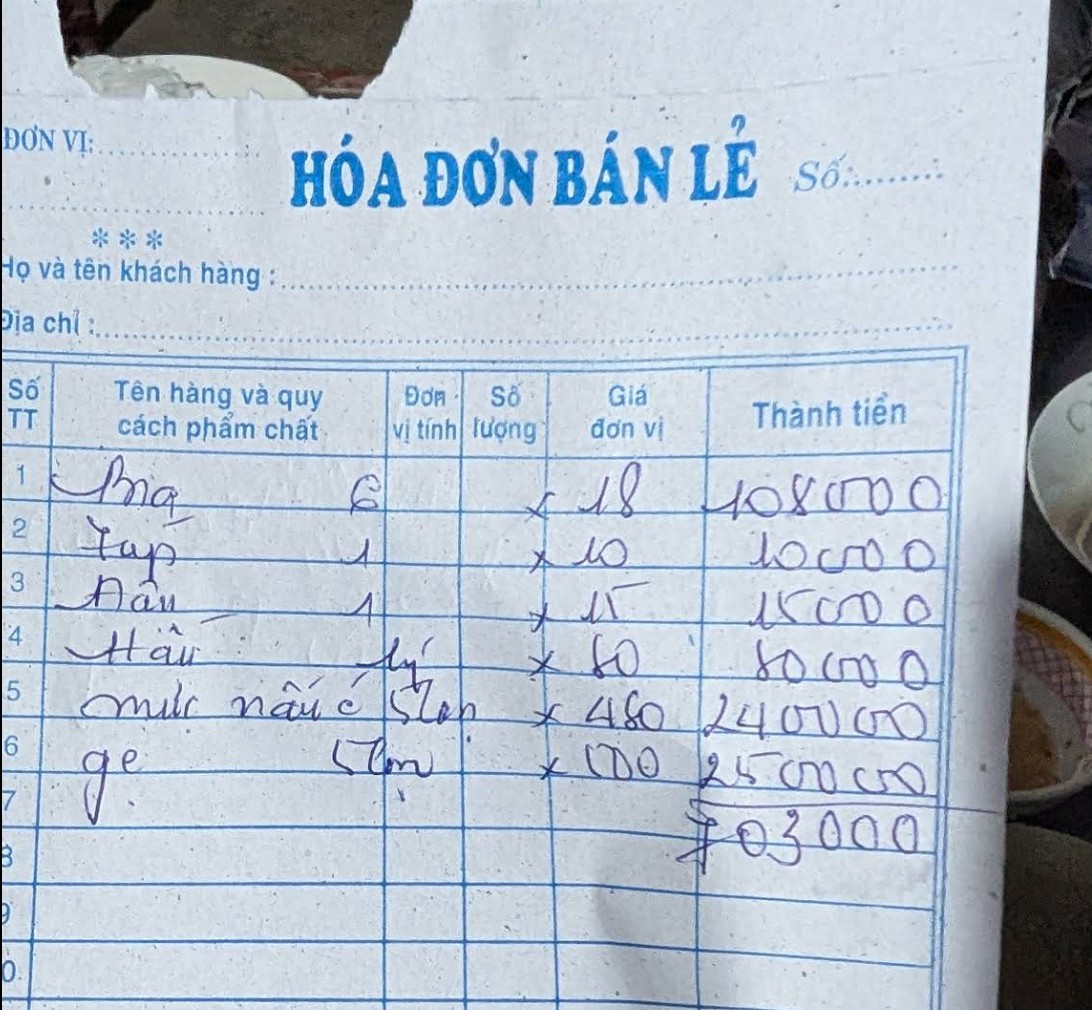 ĐƠN VỊ:
HÓA ĐƠN BÁN LẺ
Số:
***
Họ và tên khách hàng :
Địa chỉ :
Số TT Tên hàng và quy cách phẩm chất Đơn vị tính Số lượng Giá đơn vị Thành tiền
1 Bia 6 x 18 108000
2 1 x 10 10000
3 1 x 15 15000
4 Hàu ký x 80 80000
5 mực nấu 5 x 480 240000
6 ghẹ 5 x 500 250000
7 703000
8
9
0.